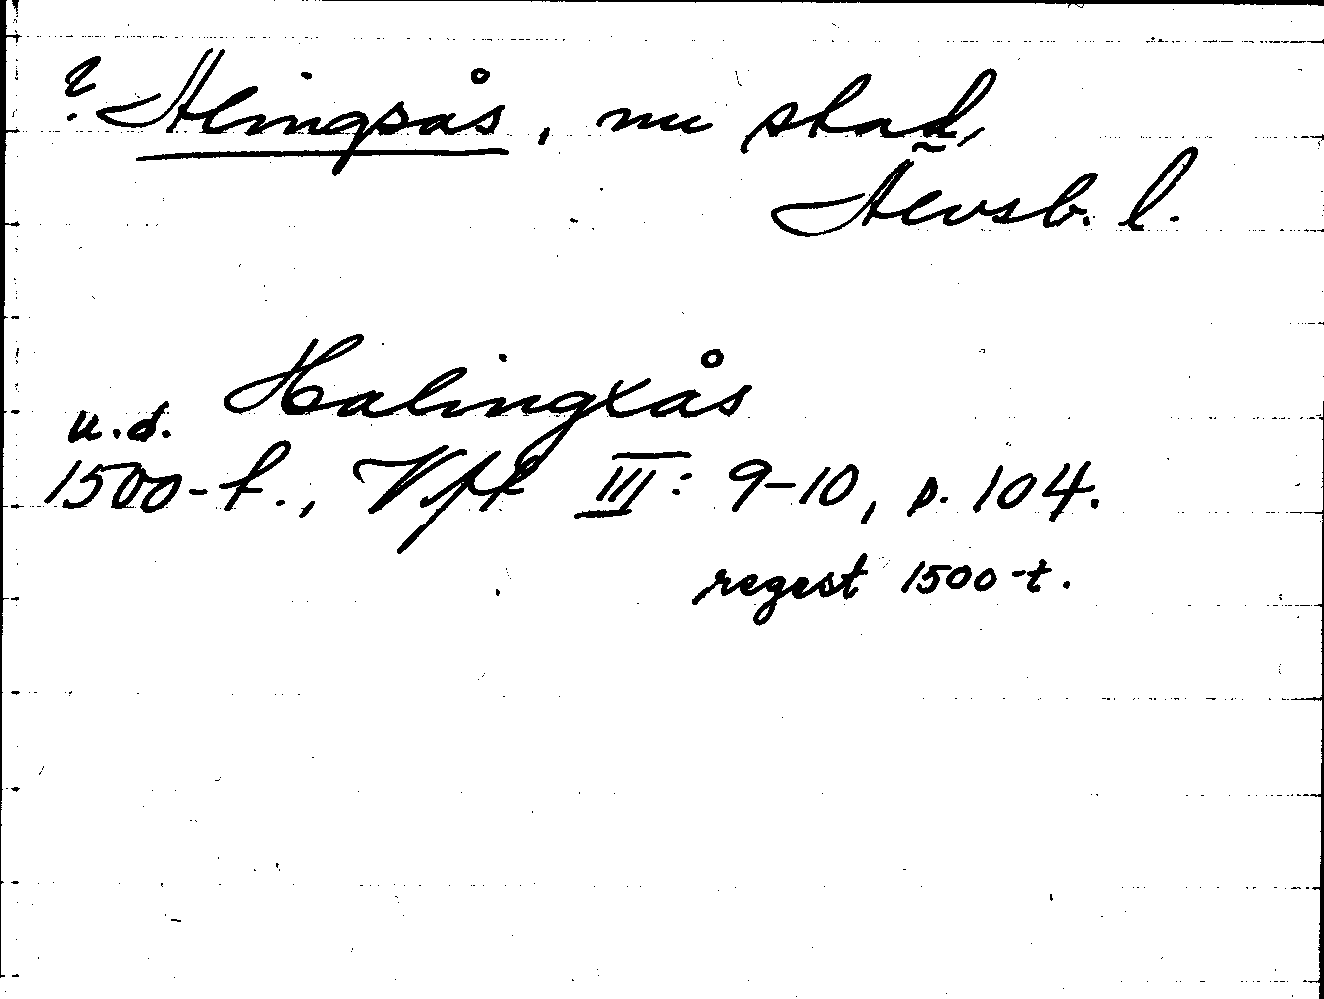 ? Alingsås, nu stad,
Älvsb. l.
Halingxås
u.d.
1500-t., Vft III: 9-10, p. 104.
regest 1500-t.